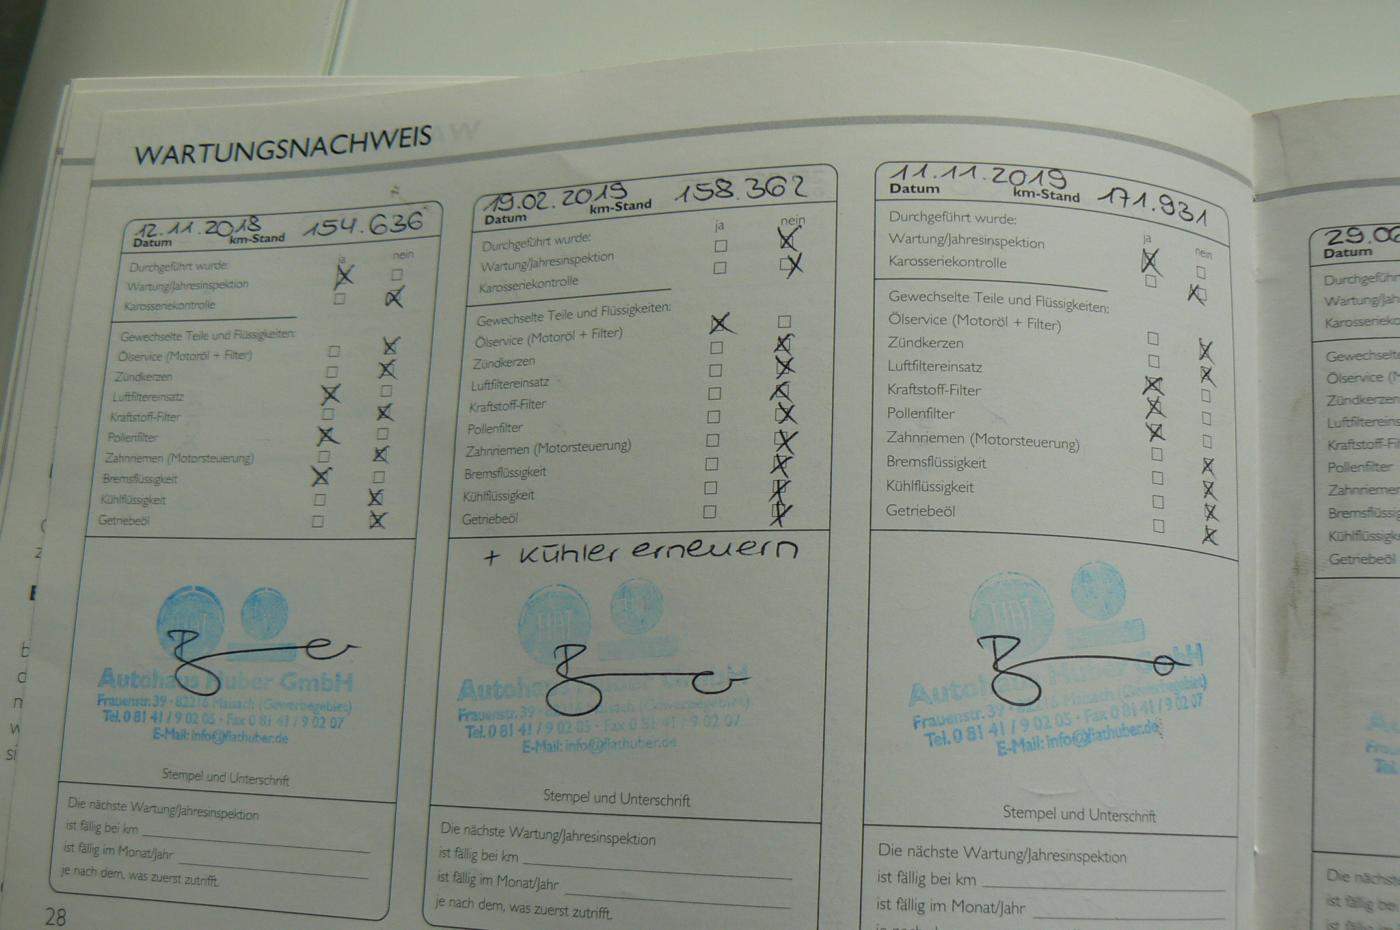 WARTUNGSNACHWEIS
12.11.2018 154.636
Datum km-Stand
ja nein
Durchgeführt wurde:
Wartung/Jahresinspektion
Karosseriekontrolle
Gewechselte Teile und Flüssigkeiten:
Ölservice (Motoröl + Filter)
Zündkerzen
Luftfiltereinsatz
Kraftstoff-Filter
Pollenfilter
Zahnriemen (Motorsteuerung)
Bremsflüssigkeit
Kühlflüssigkeit
Getriebeöl
Autohaus Huber GmbH
Frauenstr. 39 · 82216 Maisach (Gewerbegebiet)
Tel. 0 81 41 / 9 02 05 · Fax 0 81 41 / 9 02 07
E-Mail: info@fiathuber.de
Stempel und Unterschrift
Die nächste Wartung/Jahresinspektion
ist fällig bei km
ist fällig im Monat/Jahr
je nach dem, was zuerst zutrifft.
28
19.02.2019 158.362
Datum km-Stand
ja nein
Durchgeführt wurde:
Wartung/Jahresinspektion
Karosseriekontrolle
Gewechselte Teile und Flüssigkeiten:
Ölservice (Motoröl + Filter)
Zündkerzen
Luftfiltereinsatz
Kraftstoff-Filter
Pollenfilter
Zahnriemen (Motorsteuerung)
Bremsflüssigkeit
Kühlflüssigkeit
Getriebeöl
+ Kühler erneuern
Autohaus Huber GmbH
Frauenstr. 39 · 82216 Maisach (Gewerbegebiet)
Tel. 0 81 41 / 9 02 05 · Fax 0 81 41 / 9 02 07
E-Mail: info@fiathuber.de
Stempel und Unterschrift
Die nächste Wartung/Jahresinspektion
ist fällig bei km
ist fällig im Monat/Jahr
je nach dem, was zuerst zutrifft.
11.11.2019 171.931
Datum km-Stand
ja nein
Durchgeführt wurde:
Wartung/Jahresinspektion
Karosseriekontrolle
Gewechselte Teile und Flüssigkeiten:
Ölservice (Motoröl + Filter)
Zündkerzen
Luftfiltereinsatz
Kraftstoff-Filter
Pollenfilter
Zahnriemen (Motorsteuerung)
Bremsflüssigkeit
Kühlflüssigkeit
Getriebeöl
Autohaus Huber GmbH
Frauenstr. 39 · 82216 Maisach (Gewerbegebiet)
Tel. 0 81 41 / 9 02 05 · Fax 0 81 41 / 9 02 07
E-Mail: info@fiathuber.de
Stempel und Unterschrift
Die nächste Wartung/Jahresinspektion
ist fällig bei km
ist fällig im Monat/Jahr
Datum
Zündkerzen
Pollenfilter
Getriebeöl
Die nächste
ist fällig bei